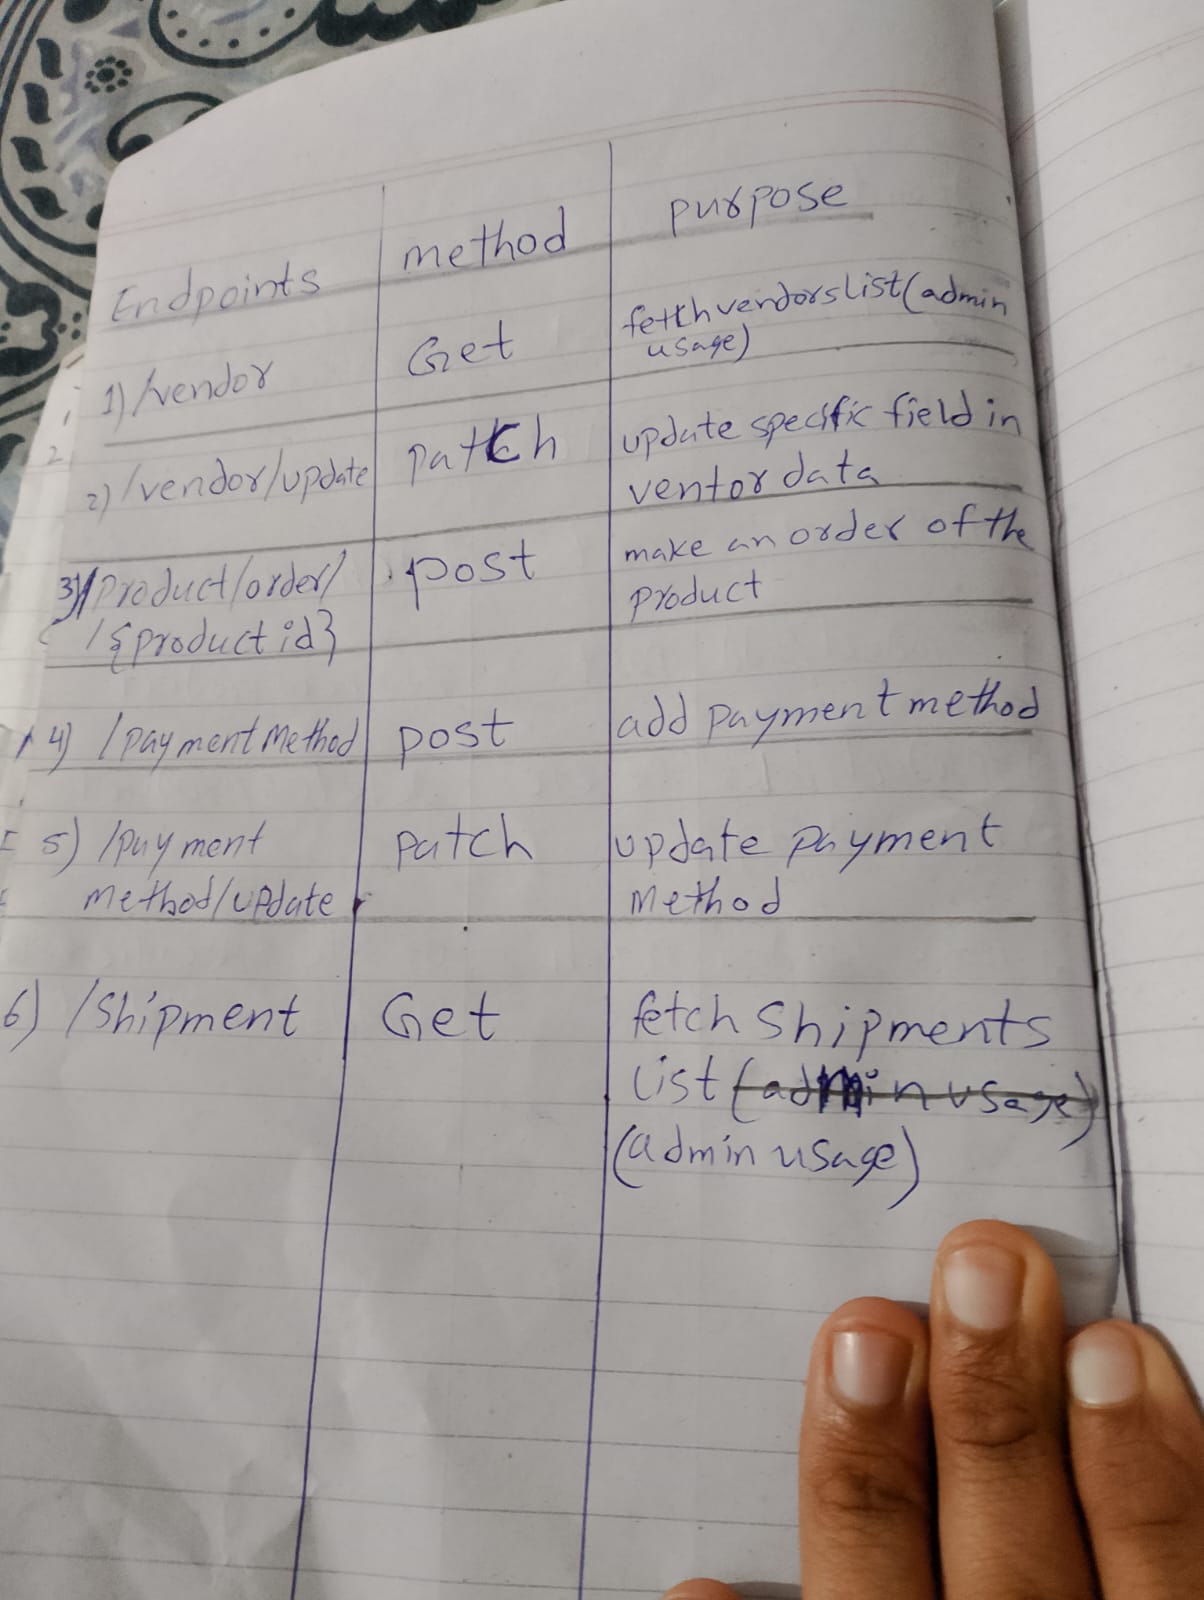 Endpoints method purpose
1) /vendor Get fetch vendors list (admin
usage)
2) /vendor/update patch update specific field in
ventor data
3) /product/order/ post make an order of the
/{product id} product
4) /payment Method post add payment method
5) /payment patch update payment
method/update Method
6) /Shipment Get fetch Shipments
list (admin usage)
(admin usage)